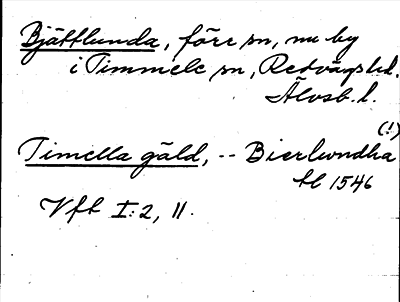 Bjättlunda, förr sn, nu by
i Timmele sn, Redvägs hd.
Älvsb. l.
(!)
Timella gäld, -- Bierlwndha
tl 1546
Vft I:2, 11.